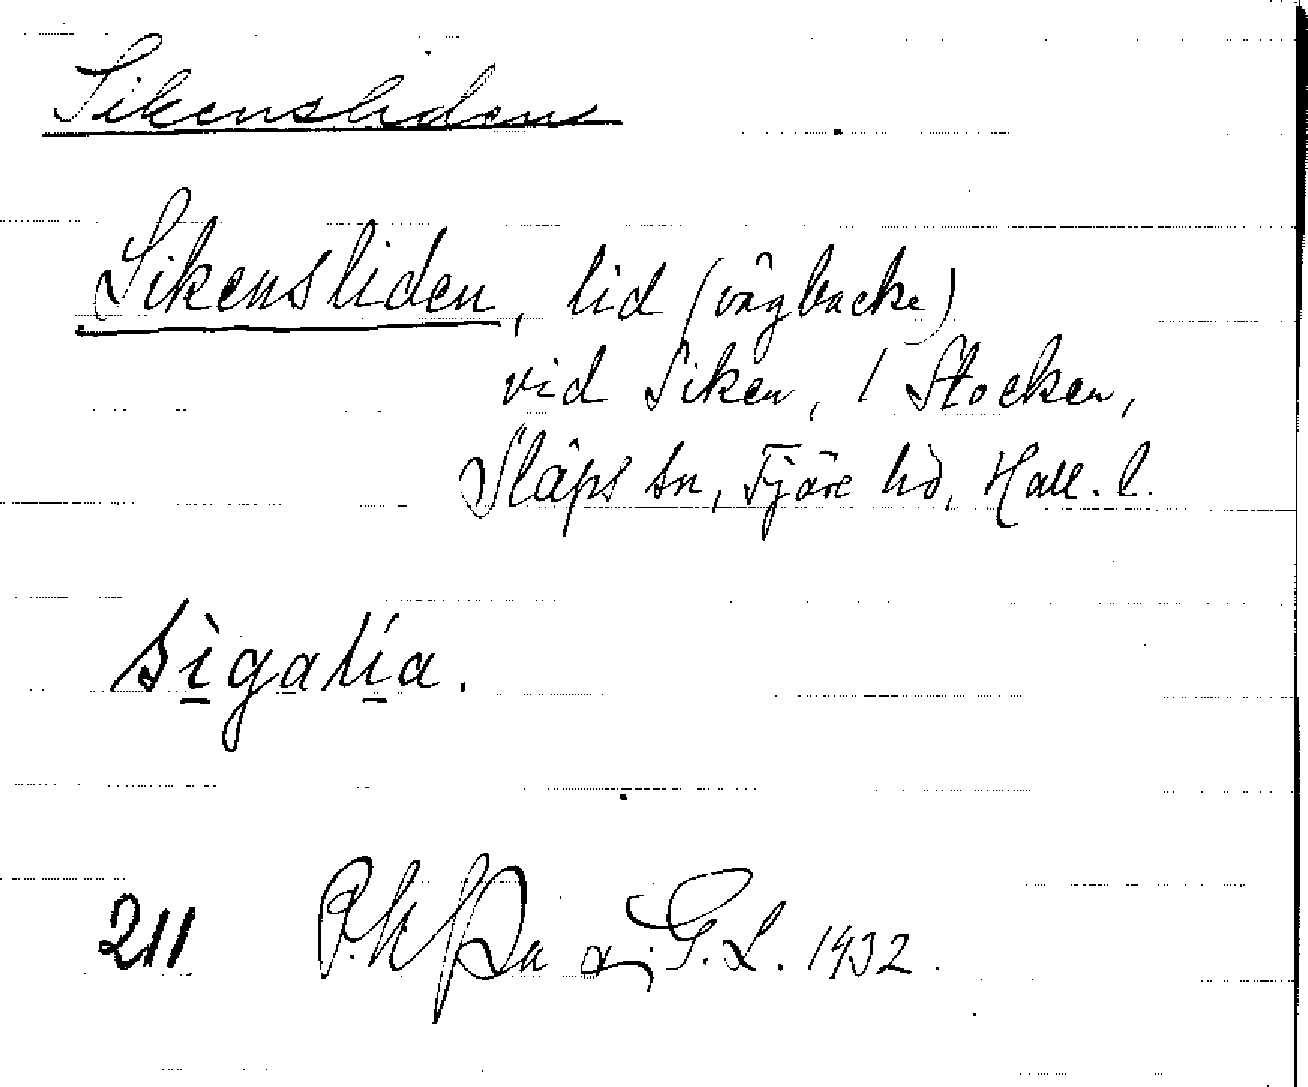 Sikensliden
Sikensliden, lid (vägbacke)
vid Siken, 1 Stocken,
Släps sn, Fjäre hd, Hall. l.
sìgalía.
211 G. L. 1932.